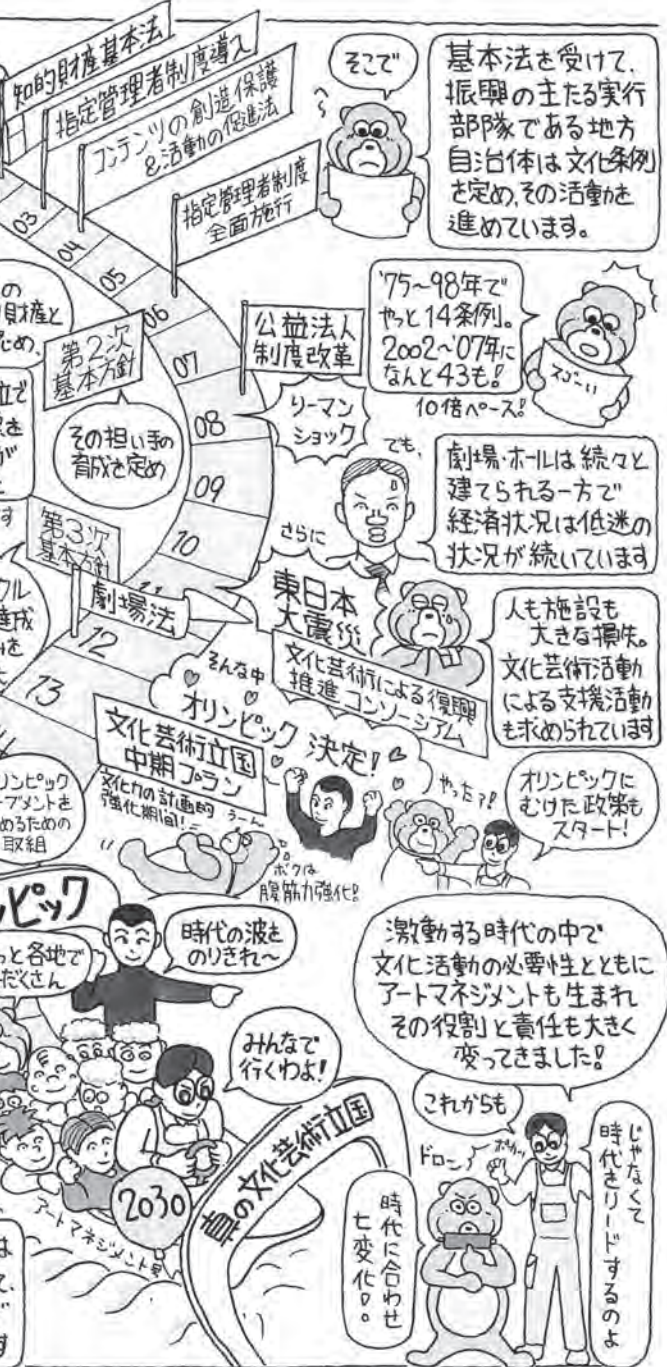 知的財産基本法
指定管理者制度導入
コンテンツの創造保護
&活動の促進法
指定管理者制度
全面施行
そこで
基本法を受けて、
振興の主たる実行
部隊である地方
自治体は文化条例
を定め、その活動を
進めています。
03
04
05
06
07
08
09
10
11
12
13
の
財産と
ため、
第2次
基本方針
公益法人
制度改革
'75~98年で
やっと14条例。
2002~'07年に
なんと43も!
10倍ペース!
スゴーい
立で
を
が
と
す
その担い手の
育成を定め
リーマン
ショック
でも、
劇場・ホールは続々と
建てられる一方で
経済状況は低迷の
状況が続いています
第3次
基本方針
さらに
クル
達成
を
劇場法
東日本
大震災
文化芸術による復興
推進コンソーシアム
人も施設も
大きな損失。
文化芸術活動
による支援活動
も求められています
そんな中
オリンピック 決定!
文化芸術立国
中期プラン
文化力の計画的
強化期間!
うーん
ボクは
腹筋力強化!
やったァ!
オリンピックに
むけた政策も
スタート!
リンピック
ーブメントを
めるための
取組
ンピック
っと各地で
だくさん
時代の波を
のりきれ~
みんなで
行くわよ!
激動する時代の中で
文化活動の必要性とともに
アートマネジメントも生まれ
その役割と責任も大きく
変ってきました!
2030
アートマネジメント号
真の文化芸術立国
これからも
ドロン
ポカッ
時代に合わせ
七変化!。
じゃなくて
時代をリードするのよ
は
て、
ご
す